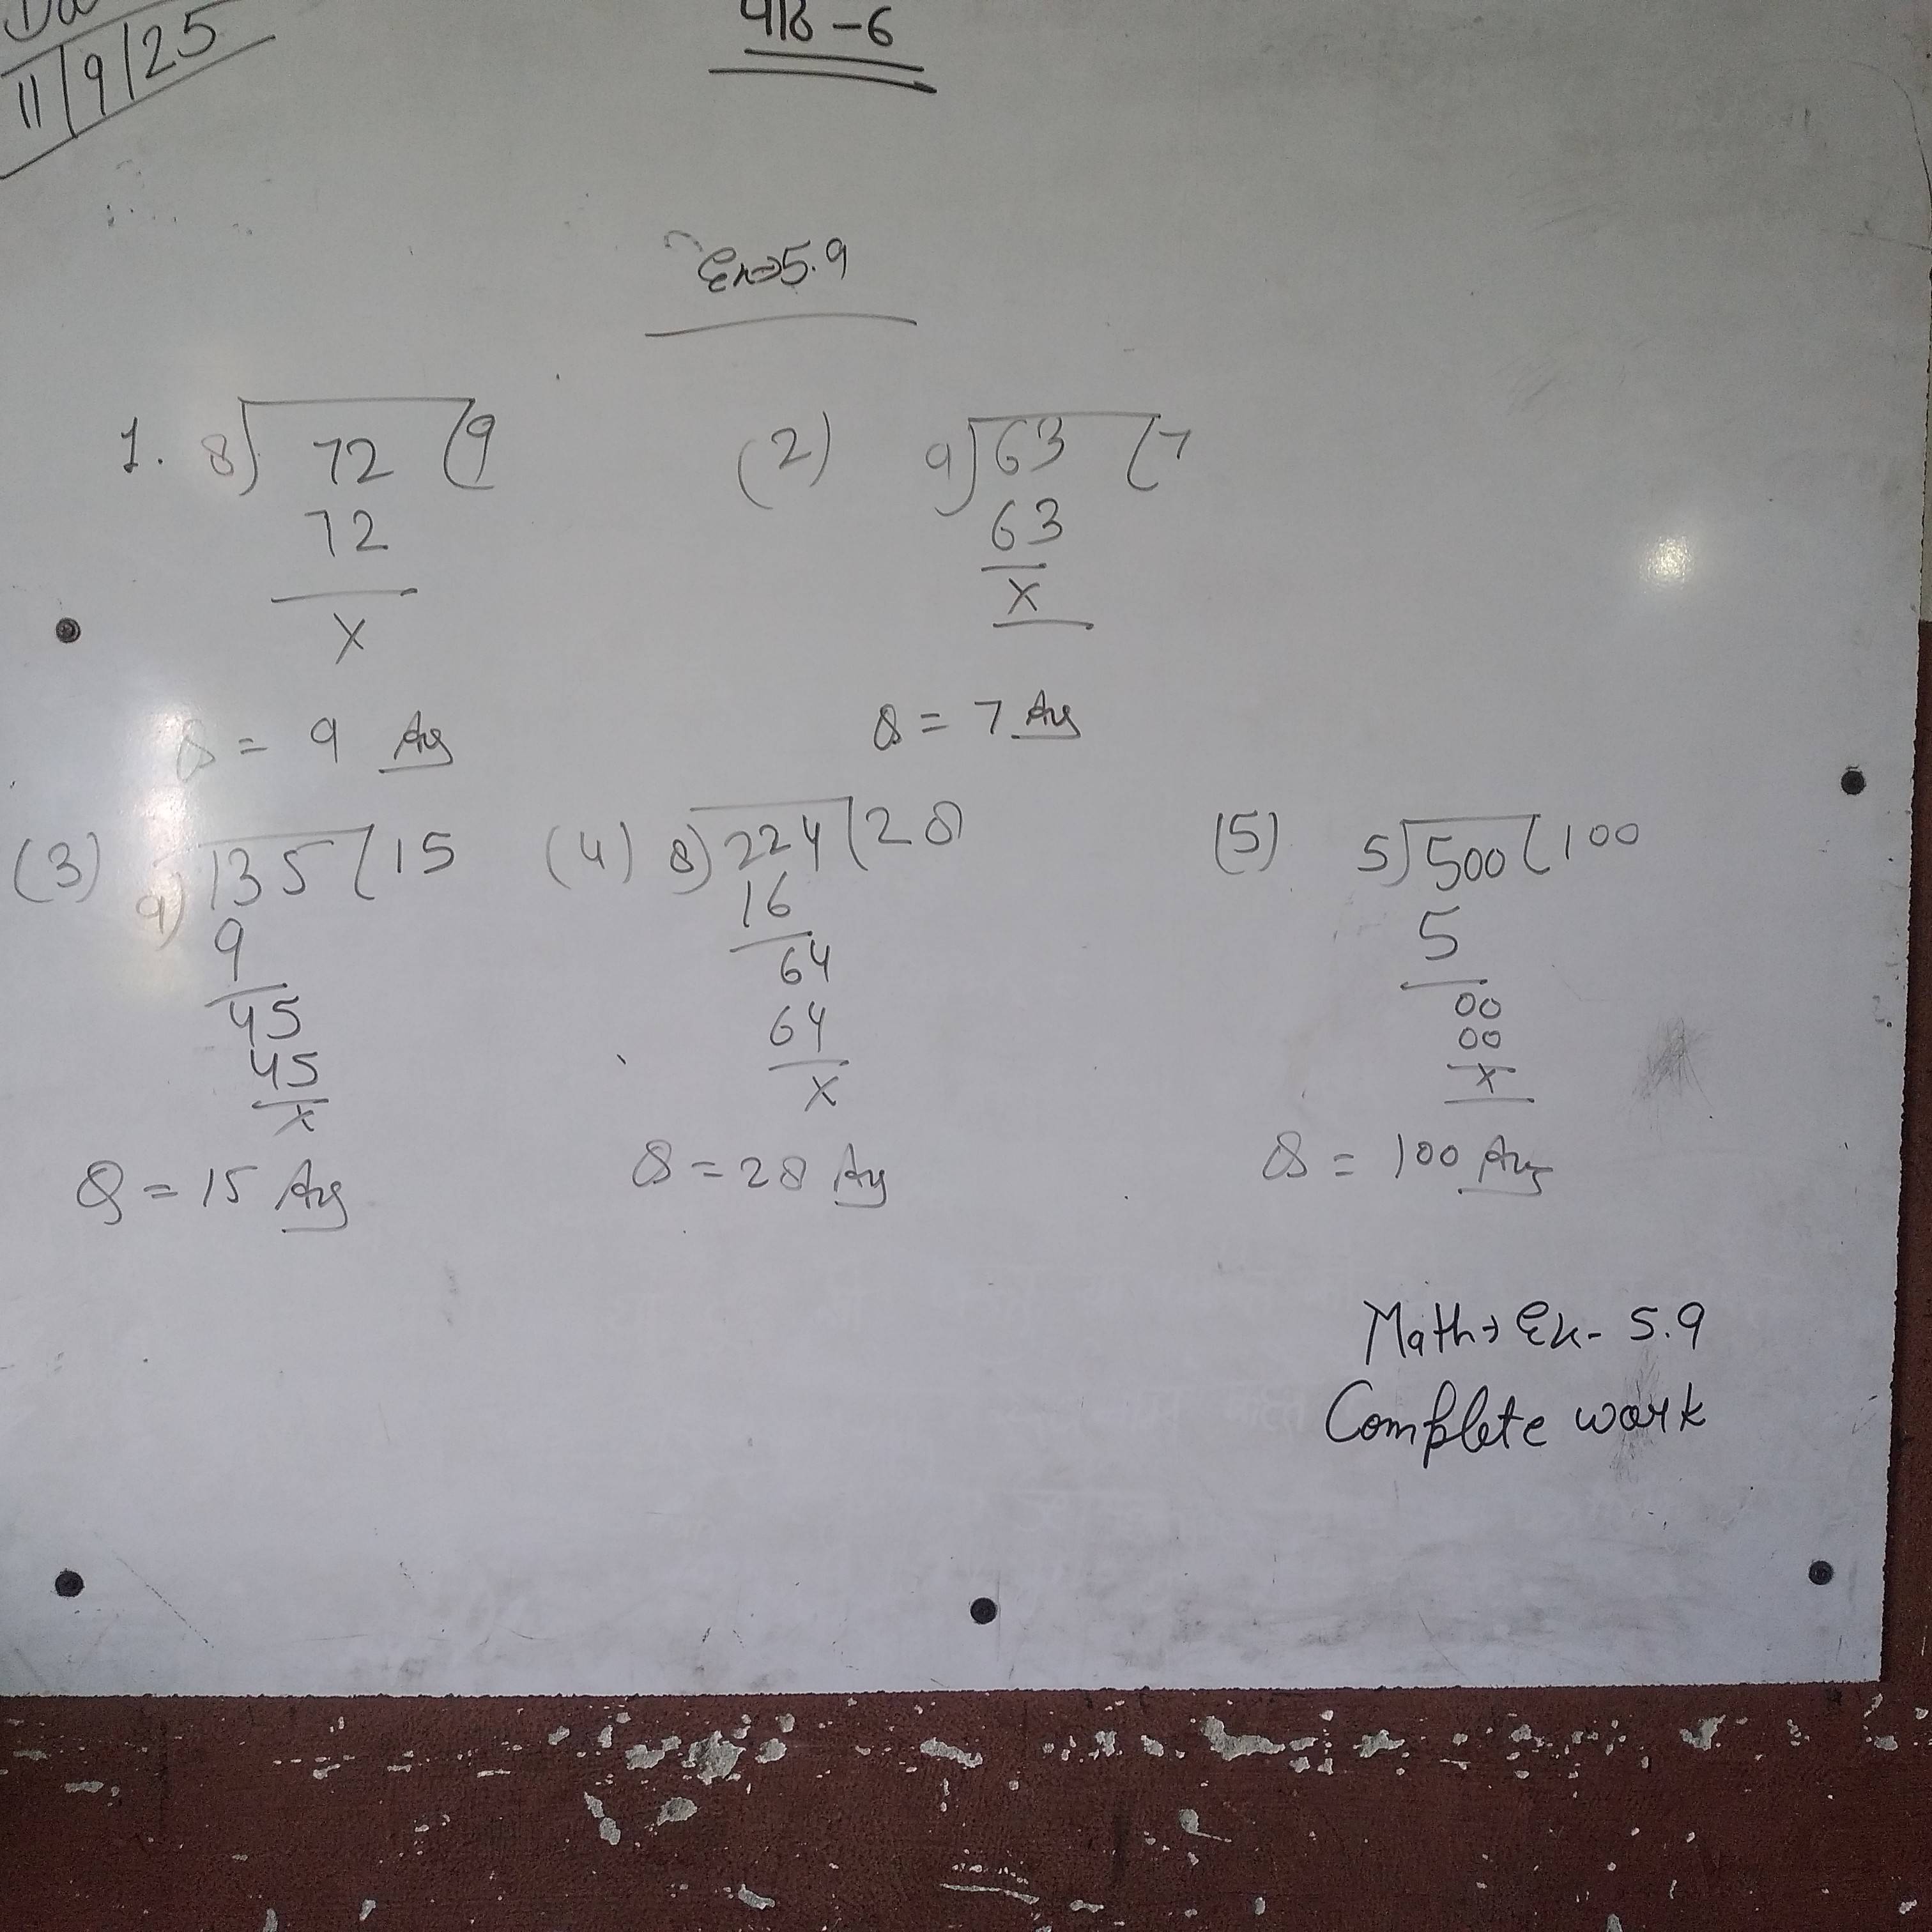 11/9/25
पाठ -6
Ex→5.9
1. 8) 72 (9
72
x
Q = 9 Ans
(2) 9) 63 (7
63
x
Q = 7 Ans
(3) 9) 135 (15
9
45
45
x
Q = 15 Ans
(4) 8) 224 (28
16
64
64
x
Q = 28 Ans
(5) 5) 500 (100
5
00
00
x
Q = 100 Ans
Math→ Ex- 5.9
Complete work